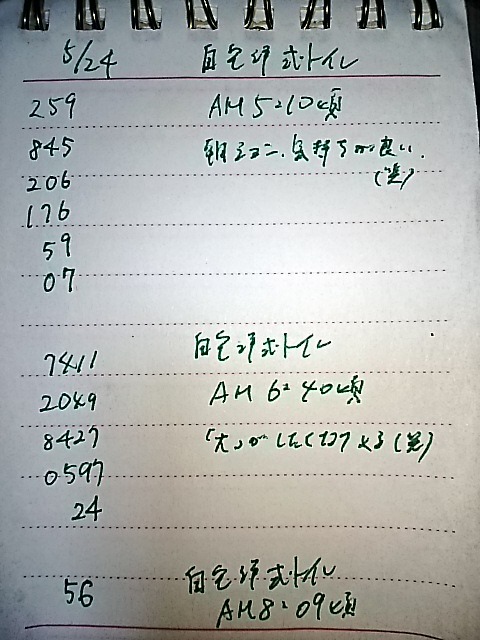 5/24 自宅洋式トイレ
259 AM 5:10頃
845 朝ション、気持ちが良い。
206 (笑)
176
59
07
7411 自宅洋式トイレ
2049 AM 6:40頃
8427 「大」がしたくなってくる(笑)
0597
24
56 自宅洋式トイレ
AM 8:09頃